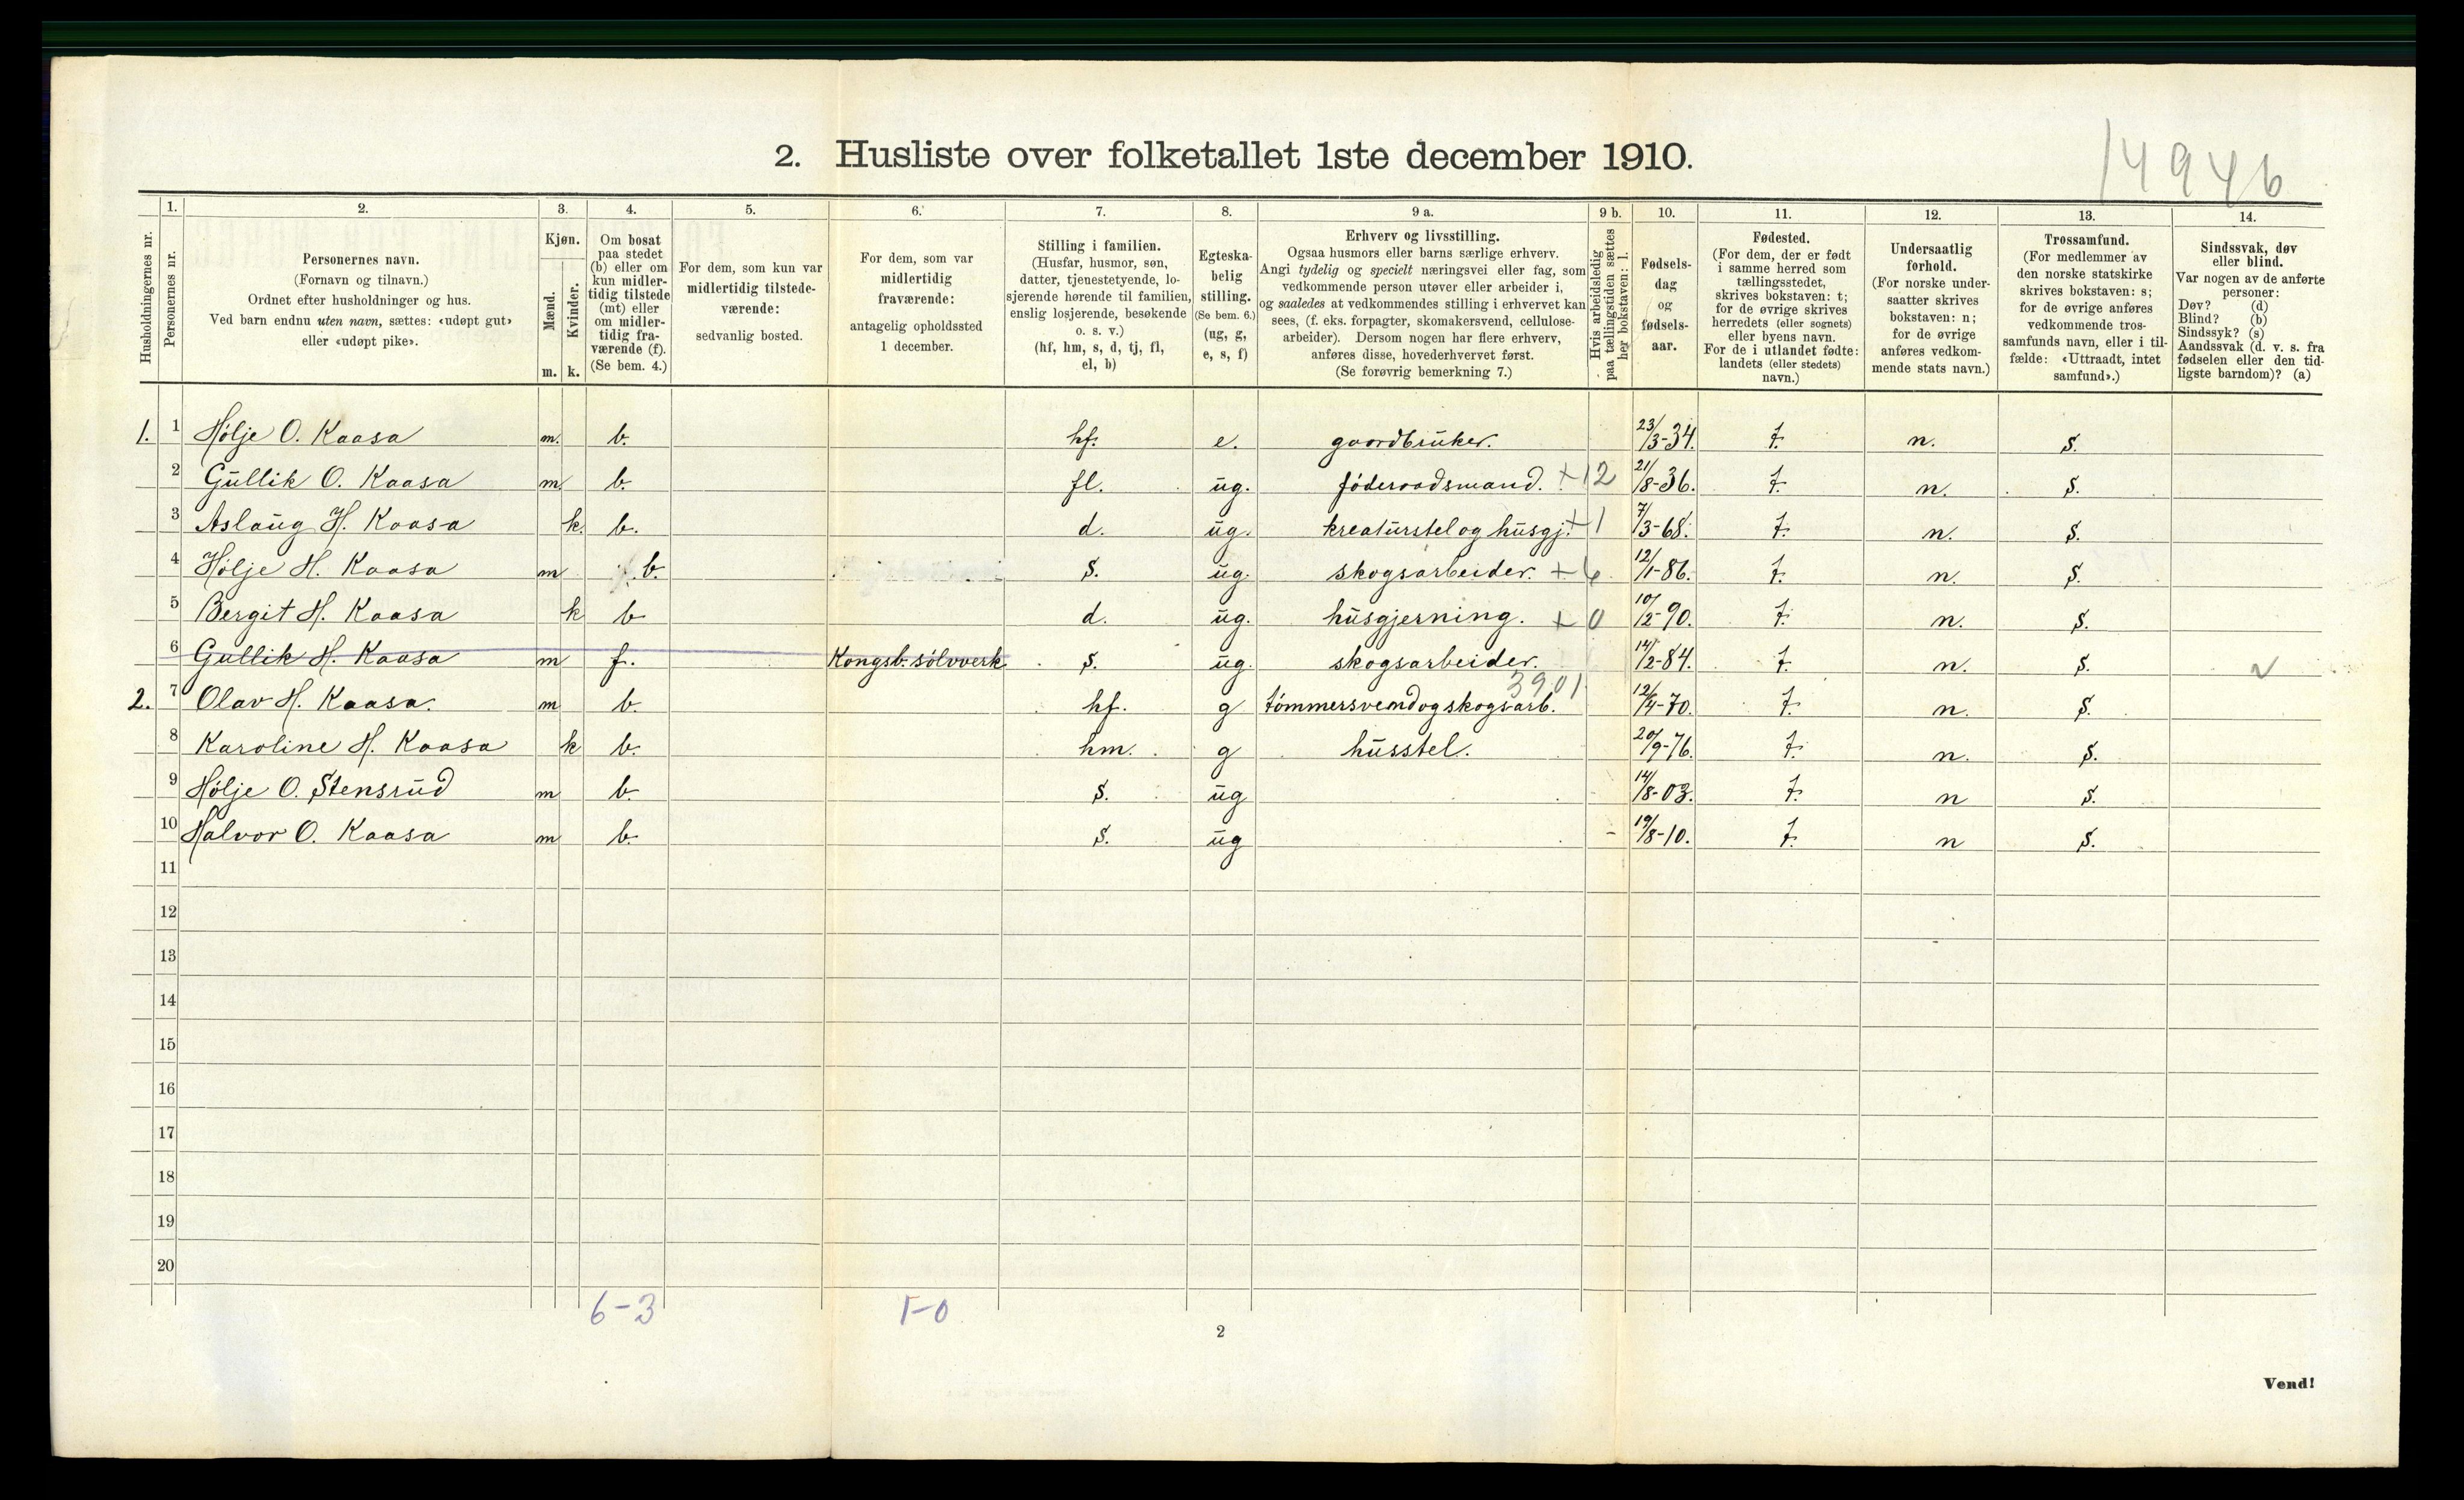 2. Husliste over folketallet 1ste december 1910.
14946
Husholdningernes nr.
1. Personernes nr.
2. Personernes navn. (Fornavn og tilnavn.) Ordnet efter husholdninger og hus. Ved barn endnu uten navn, sættes: «udøpt gut» eller «udøpt pike».
3. Kjøn. Mænd. m. Kvinder. k.
4. Om bosat paa stedet (b) eller om kun midlertidig tilstede (mt) eller om midlertidig fraværende (f). (Se bem. 4.)
5. For dem, som kun var midlertidig tilstedeværende: sedvanlig bosted.
6. For dem, som var midlertidig fraværende: antagelig opholdssted 1 december.
7. Stilling i familien. (Husfar, husmor, søn, datter, tjenestetyende, losjerende hørende til familien, enslig losjerende, besøkende o. s. v.) (hf, hm, s, d, tj, fl, el, b)
8. Egteskabelig stilling. (Se bem. 6.) (ug, g, e, s, f)
9 a. Erhverv og livsstilling. Ogsaa husmors eller barns særlige erhverv. Angi tydelig og specielt næringsvei eller fag, som vedkommende person utøver eller arbeider i, og saaledes at vedkommendes stilling i erhvervet kan sees, (f. eks. forpagter, skomakersvend, cellulosearbeider). Dersom nogen har flere erhverv, anføres disse, hovederhvervet først. (Se forøvrig bemerkning 7.)
9 b. Hvis arbeidsledig paa tællingstiden sættes her bokstaven: l.
10. Fødselsdag og fødselsaar.
11. Fødested. (For dem, der er født i samme herred som tællingsstedet, skrives bokstaven: t; for de øvrige skrives herredets (eller sognets) eller byens navn. For de i utlandet fødte: landets (eller stedets) navn.)
12. Undersaatlig forhold. (For norske undersaatter skrives bokstaven: n; for de øvrige anføres vedkommende stats navn.)
13. Trossamfund. (For medlemmer av den norske statskirke skrives bokstaven: s; for de øvrige anføres vedkommende trossamfunds navn, eller i tilfælde: «Uttraadt, intet samfund».)
14. Sindssvak, døv eller blind. Var nogen av de anførte personer: Døv? (d) Blind? (b) Sindssyk? (s) Aandssvak (d. v. s. fra fødselen eller den tidligste barndom)? (a)
1. 1 Hølje O. Kaasa m. b. hf. e. gaardbruker. 23/3-34. t. n. s.
2 Gullik O. Kaasa m. b. fl. ug. føderaadsmand. +12 21/8-36. t. n. s.
3 Aslaug H. Kaasa k. b. d. ug. kreaturstel og husgj. +1 7/3-68. t. n. s.
4 Hølje H. Kaasa m b. s. ug. skogsarbeider. +6 12/1-86. t. n. s.
5 Bergit H. Kaasa k b d. ug. husgjerning. +0 10/2-90. t. n. s.
6 Gullik H. Kaasa m f. Kongsb. sølvverk s. ug. skogsarbeider. 14/2-84. t. n. s.
3901
2. 7 Olav H. Kaasa. m b. hf. g tømmersvend og skogsarb. 12/4-70. t. n. s.
8 Karoline H. Kaasa k b. hm. g husstel. 20/9-76. t. n. s.
9 Hølje O. Stensrud m b. s. ug 14/8-03. t. n s.
10 Halvor O. Kaasa m b. s. ug - 19/8-10. t. n s.
11
12
13
14
15
16
17
18
19
20
6-3 1-0
2
Vend!